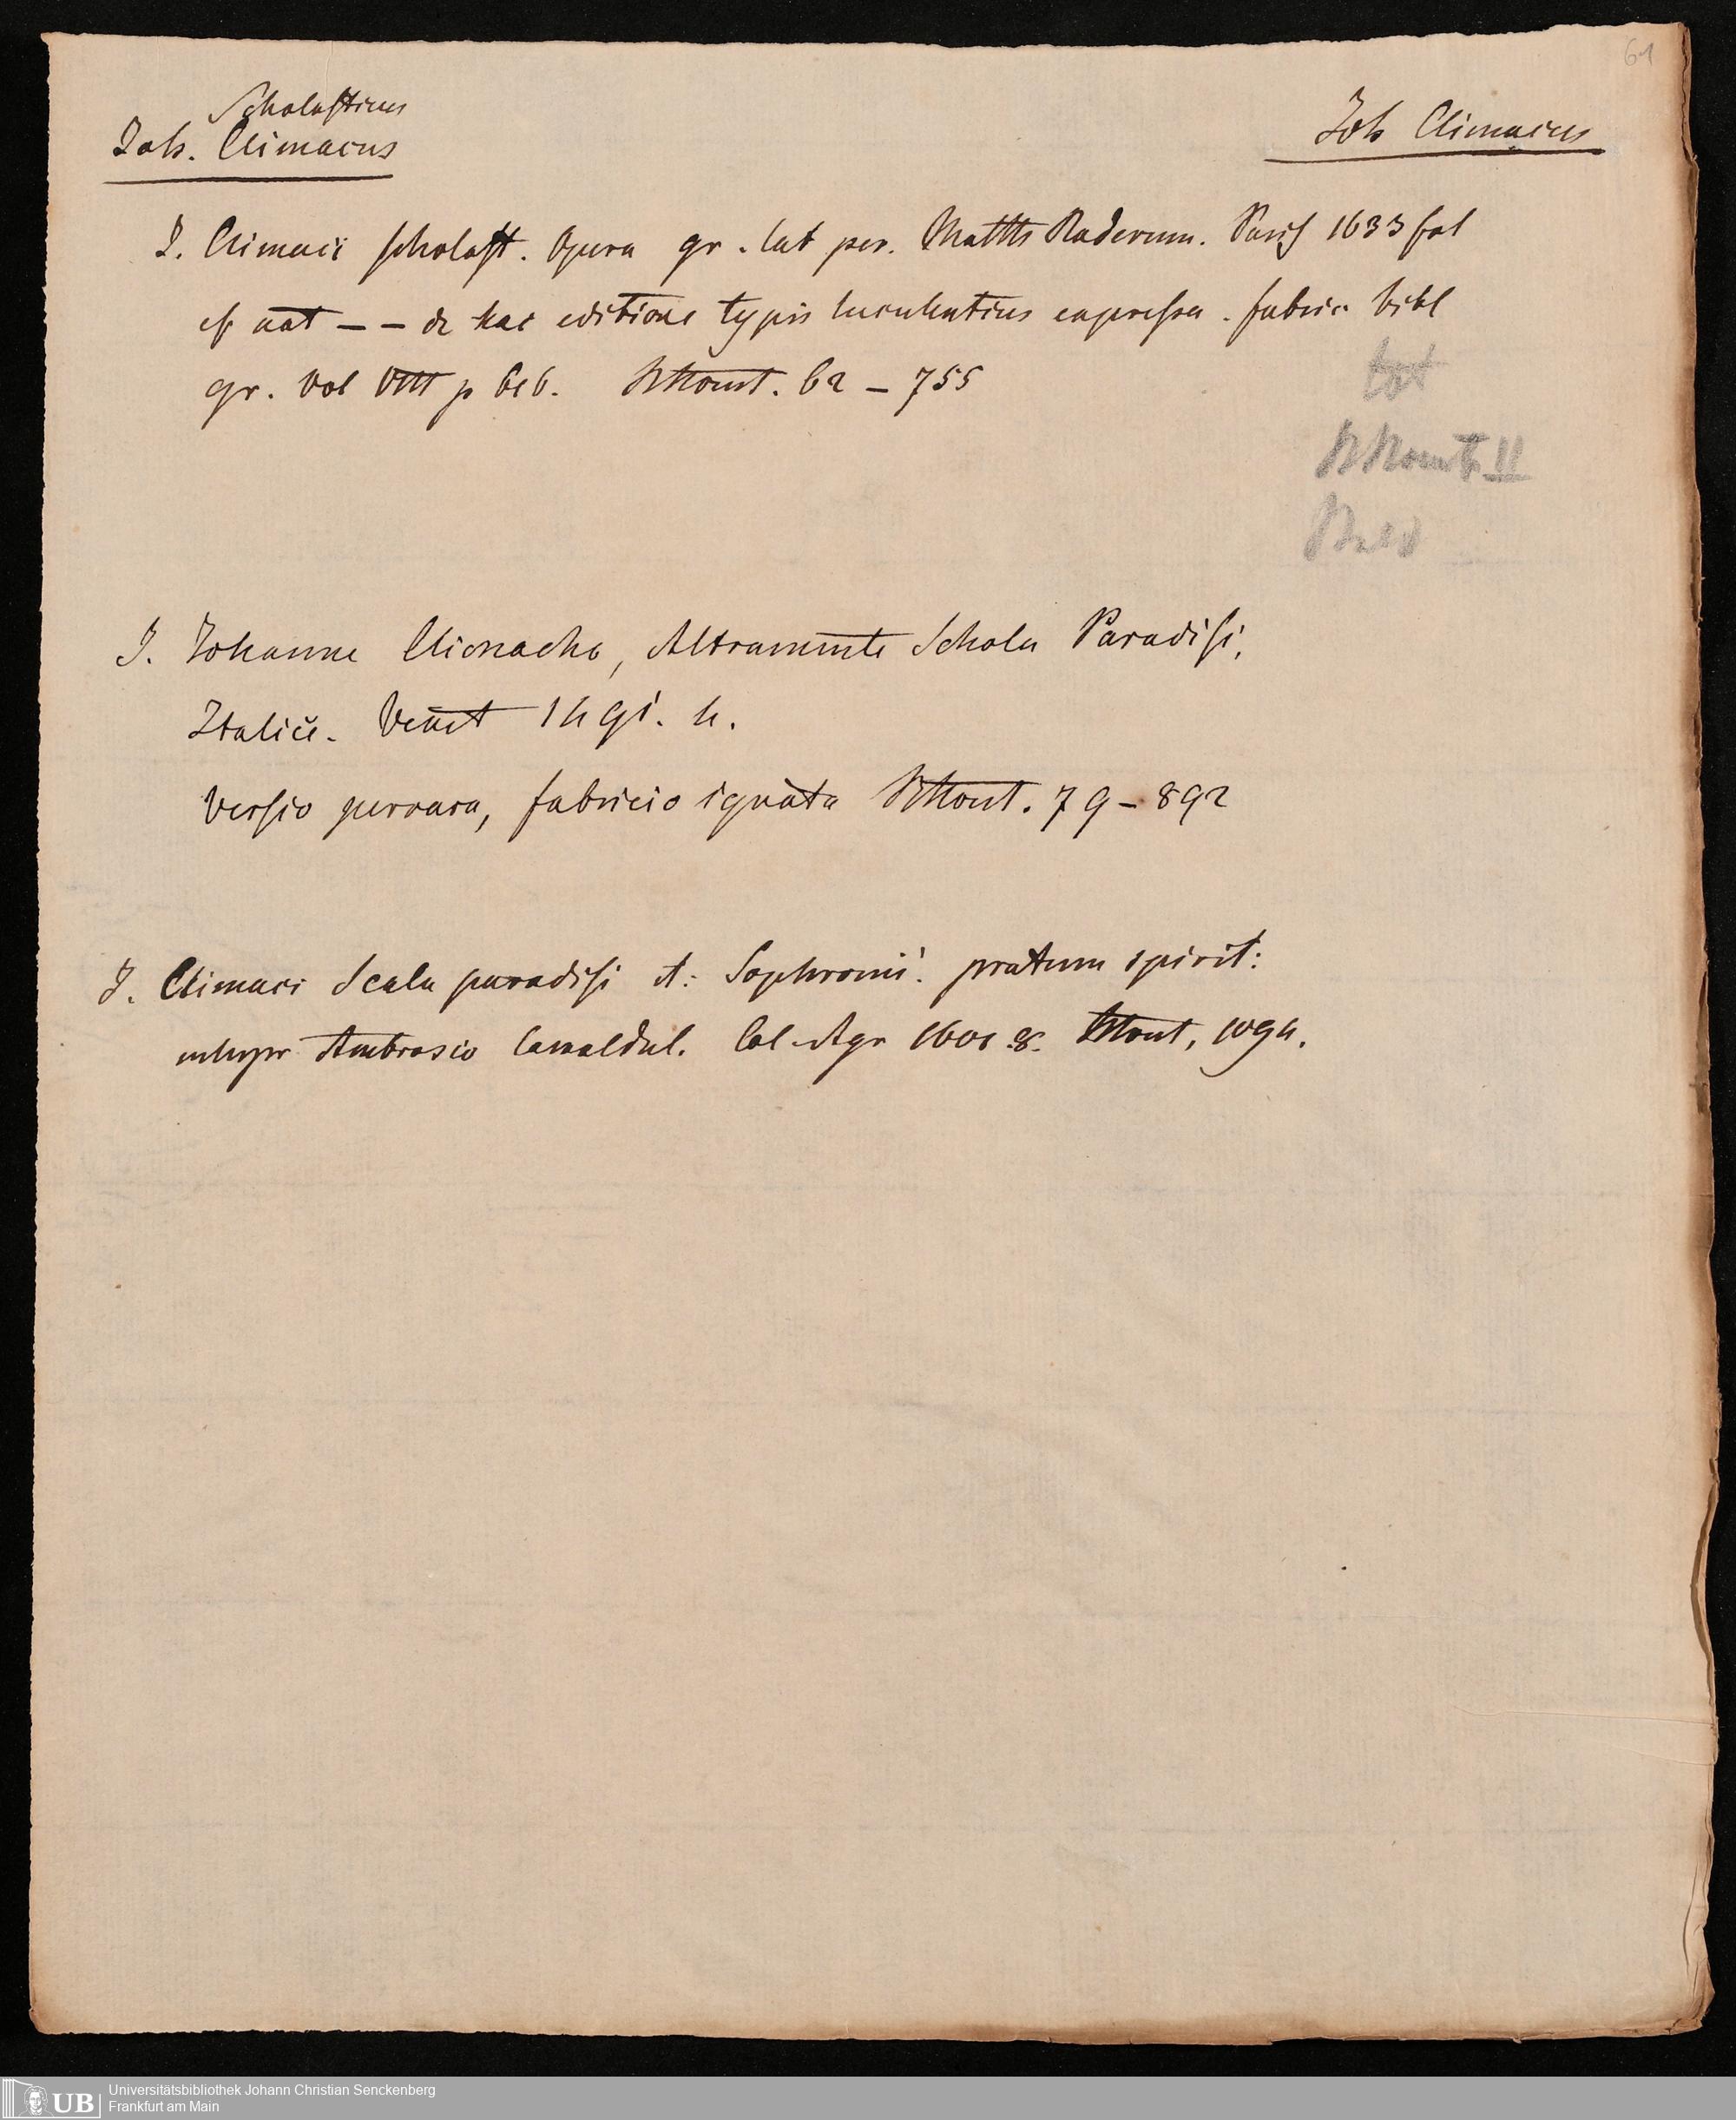 61
Scholasticus
Joh. Climacus
Joh Climacus
J. Climaci scholast. Opera gr. lat per. Matth Raderum. Paris 1633 fol
cf not — — de hac editione typis luculentius expressa. fabric bibl
gr. Vol VIII p 616. 62 — 755
tot
II
J. Johanne Climacho, Altramente Schala Paradisi,
Italicè. Venet 1491. 4.
Versio perrara, fabricio ignota 79 — 892
J. Climaci Scala paradisi et: Sophronii pratum spirit:
interpr Ambrosio Camaldul. Col Agr 1601 8. 1094.
Universitätsbibliothek Johann Christian Senckenberg
Frankfurt am Main
UB